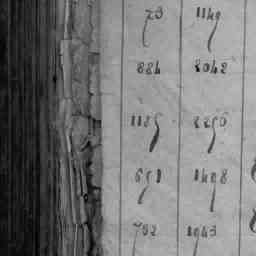 73 1149
884 2042
1125 2256
651 1498
702 1943